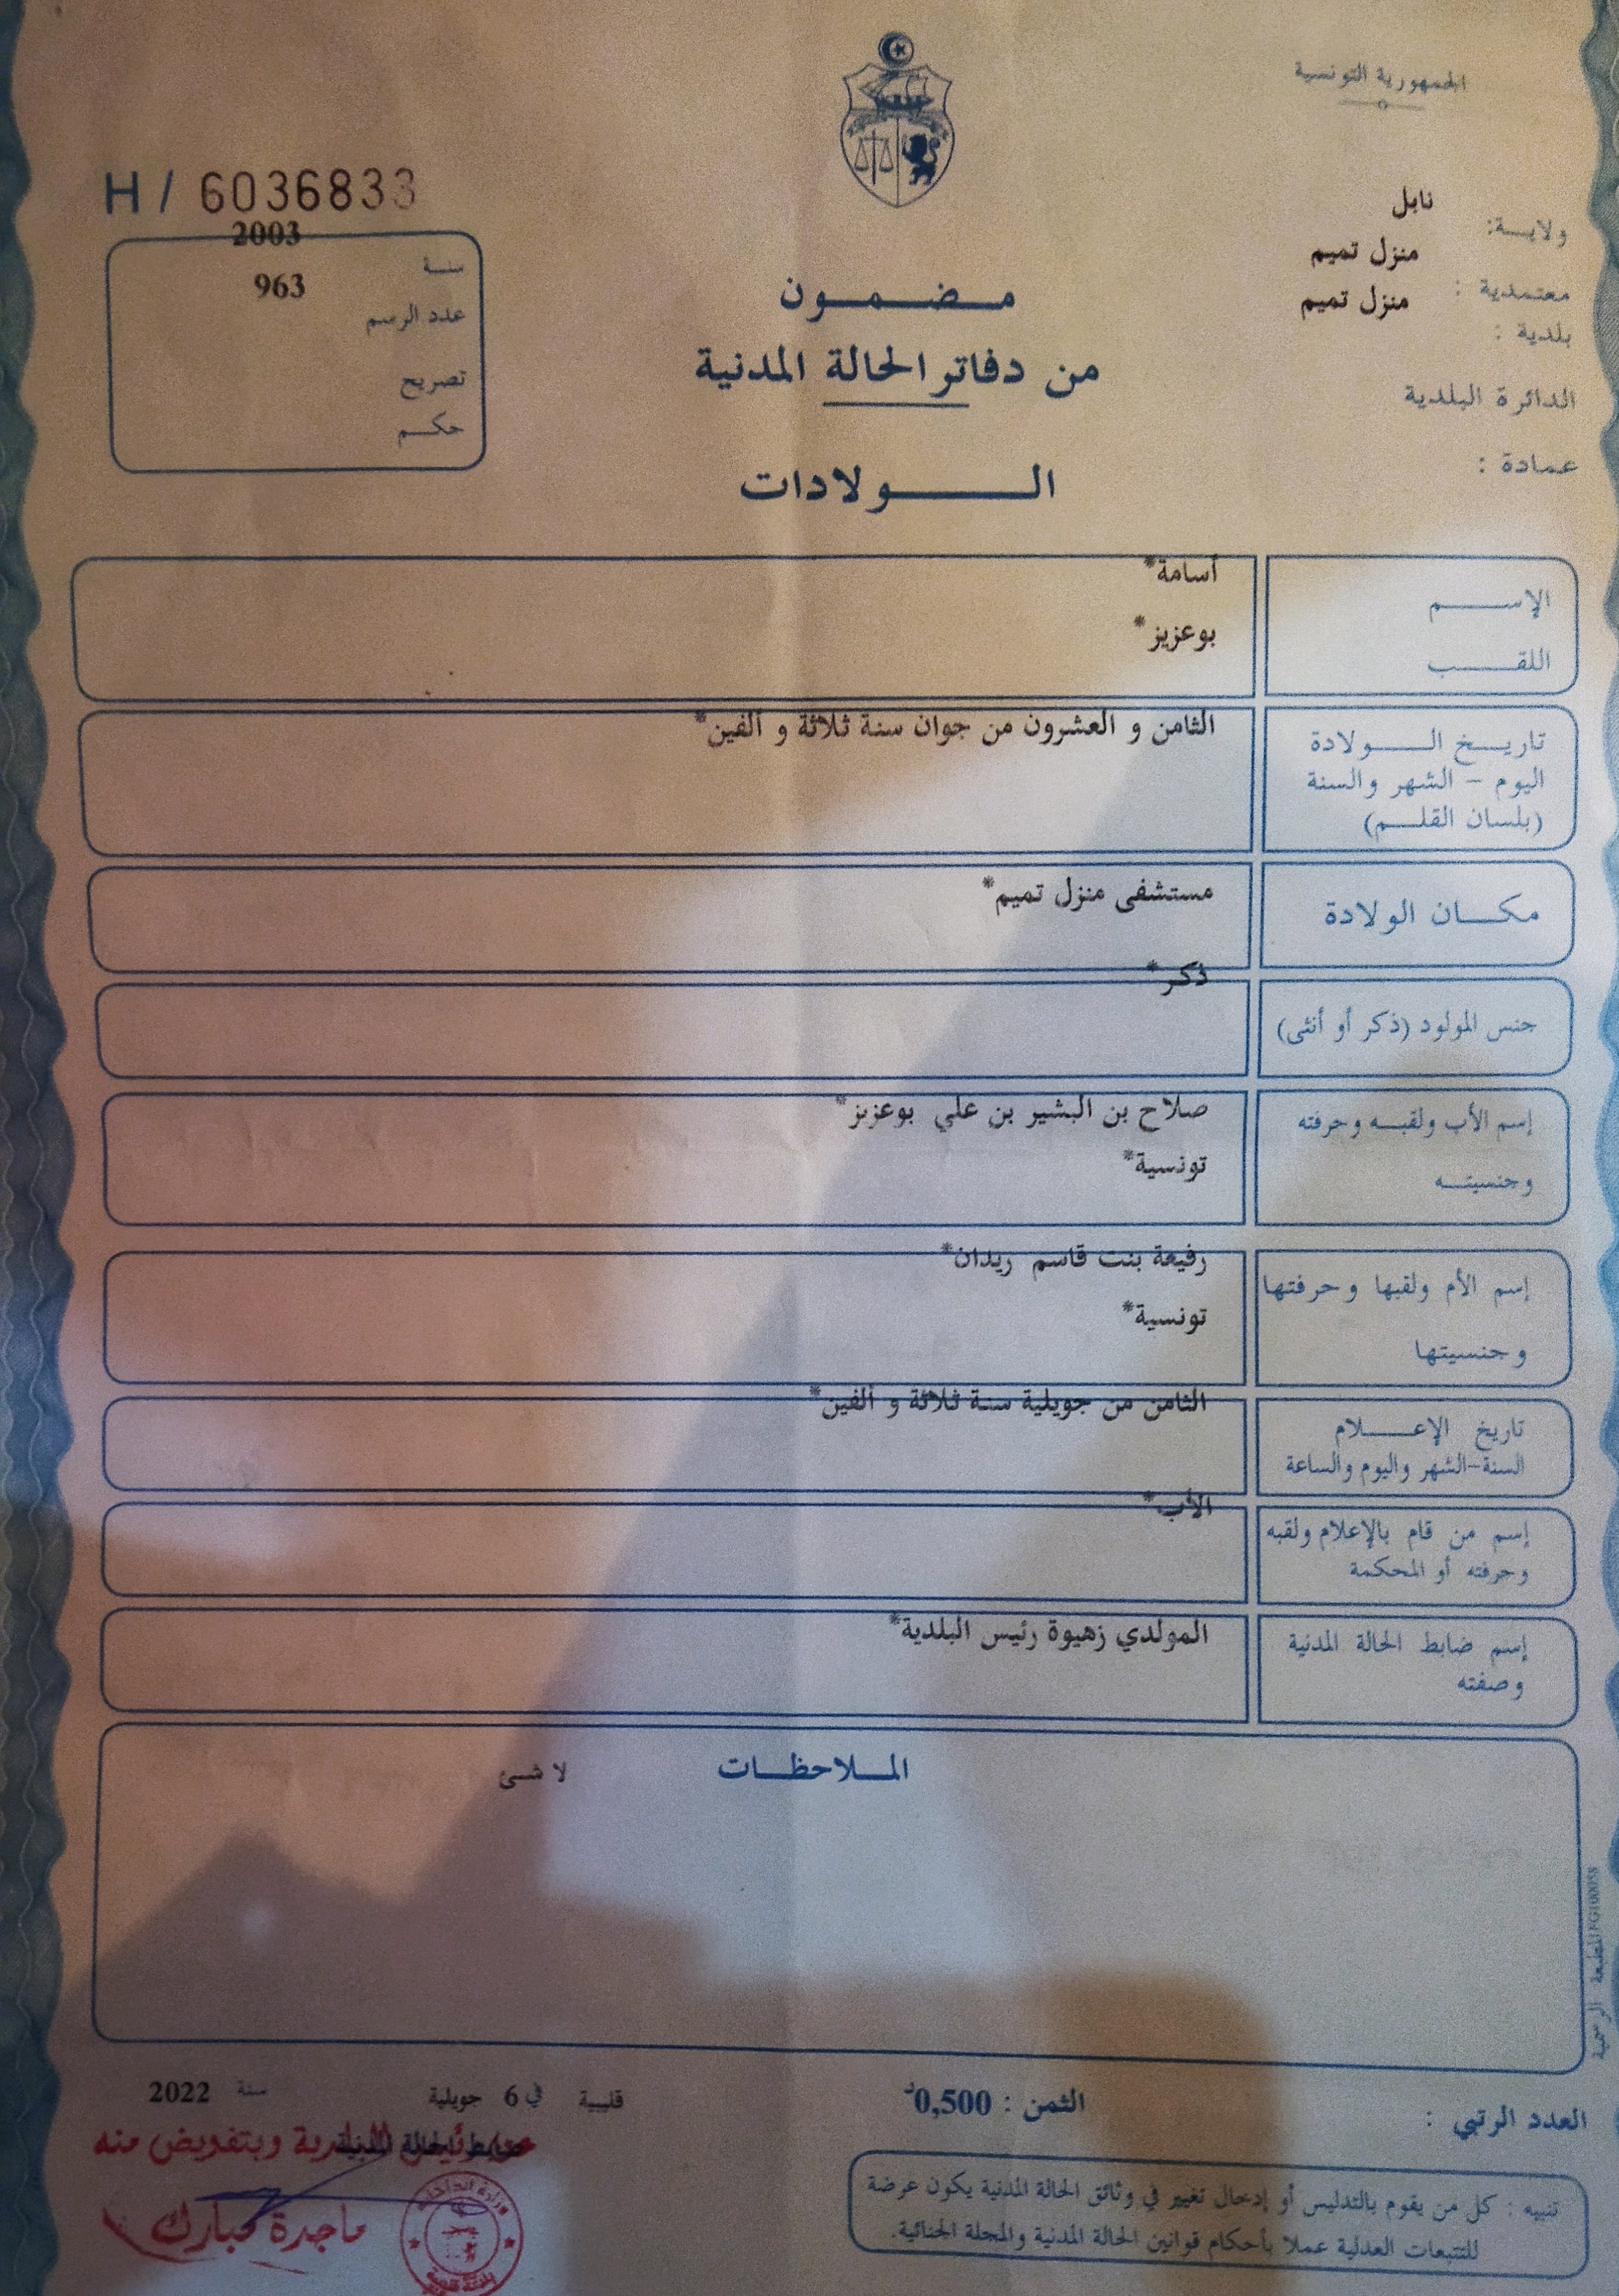 الجمهورية التونسية
H / 6036833
ولايــة: نابل
معتمدية : منزل تميم
بلدية : منزل تميم
الدائرة البلدية
عمادة :
سنة 2003
عدد الرسم 963
تصريح
حكم
مضمون
من دفاتر الحالة المدنية
الولادات
الإسم أسامة*
اللقب بوعزيز*
تاريخ الولادة الثامن و العشرون من جوان سنة ثلاثة و ألفين*
اليوم - الشهر والسنة
(بلسان القلم)
مكان الولادة مستشفى منزل تميم*
جنس المولود (ذكر أو أنثى) ذكر*
إسم الأب ولقبه وحرفته صلاح بن البشير بن علي بوعزيز*
وجنسيته تونسية*
إسم الأم ولقبها وحرفتها رفيعة بنت قاسم ريدان*
وجنسيتها تونسية*
تاريخ الإعلام الثامن من جويلية سنة ثلاثة و ألفين*
السنة-الشهر واليوم والساعة
إسم من قام بالإعلام ولقبه الأب*
وحرفته أو المحكمة
إسم ضابط الحالة المدنية المولدي زهيوة رئيس البلدية*
وصفته
الملاحظات لا شئ
العدد الرتبي :
الثمن : 0,500د
قليبية في 6 جويلية سنة 2022
ضابط الحالة المدنية
وبتفويض منه
ماجدة مبارك
تنبيه : كل من يقوم بالتدليس أو إدخال تغيير في وثائق الحالة المدنية يكون عرضة
للتتبعات العدلية عملا بأحكام قوانين الحالة المدنية والمجلة الجنائية.
المطبعة الرسمية